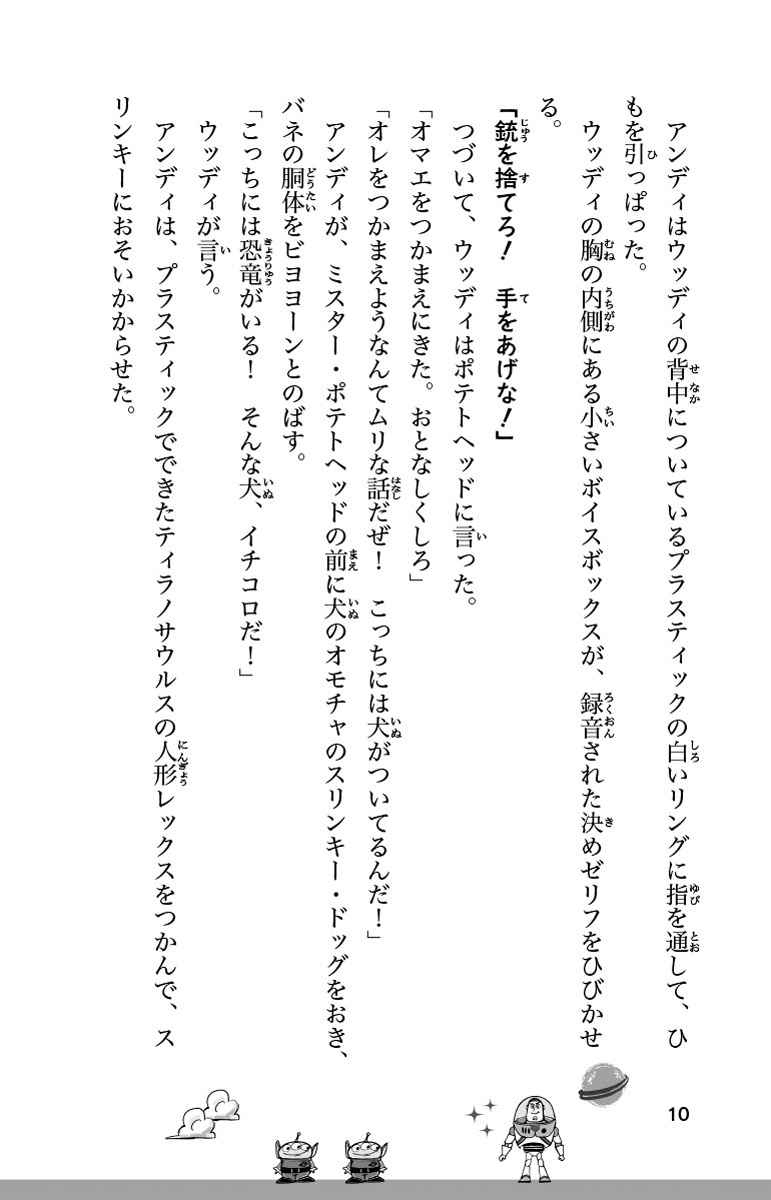 アンディはウッディの背中についているプラスティックの白いリングに指を通して、ひ
もを引っぱった。
ウッディの胸の内側にある小さいボイスボックスが、録音された決めゼリフをひびかせ
る。
「銃を捨てろ！　手をあげな！」
つづいて、ウッディはポテトヘッドに言った。
「オマエをつかまえにきた。おとなしくしろ」
「オレをつかまえようなんてムリな話だぜ！　こっちには犬がついてるんだ！」
アンディが、ミスター・ポテトヘッドの前に犬のオモチャのスリンキー・ドッグをおき、
バネの胴体をビヨヨーンとのばす。
「こっちには恐竜がいる！　そんな犬、イチコロだ！」
ウッディが言う。
アンディは、プラスティックでできたティラノサウルスの人形レックスをつかんで、ス
リンキーにおそいかからせた。
10